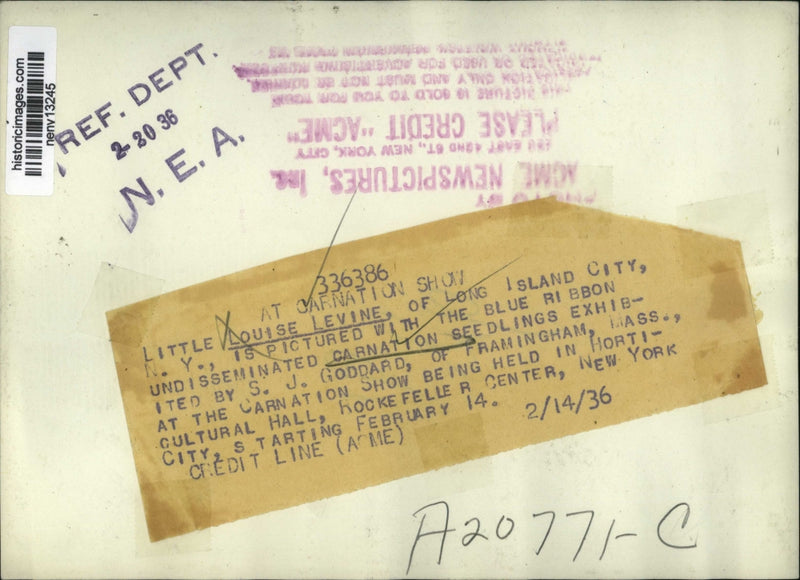 historicimages.com
nenv13245
REF. DEPT.
2-20 36
N. E. A.
ACME NEWSPICTURES, Inc.
220 EAST 42ND ST., NEW YORK, CITY
PLEASE CREDIT "ACME"
THIS PICTURE IS SOLD TO YOU FOR YOUR
PUBLICATION ONLY AND MUST NOT BE LOANED,
OR USED FOR ADVERTISING
WITHOUT WRITTEN PERMISSION
336386
AT CARNATION SHOW
LITTLE LOUISE LEVINE, OF LONG ISLAND CITY,
N. Y., IS PICTURED WITH THE BLUE RIBBON
UNDISSEMINATED CARNATION SEEDLINGS EXHIB-
ITED BY S. J. GODDARD, OF FRAMINGHAM, MASS.,
AT THE CARNATION SHOW BEING HELD IN HORTI-
CULTURAL HALL, ROCKEFELLER CENTER, NEW YORK
CITY, STARTING FEBRUARY 14.
CREDIT LINE (ACME)
2/14/36
A20771-C